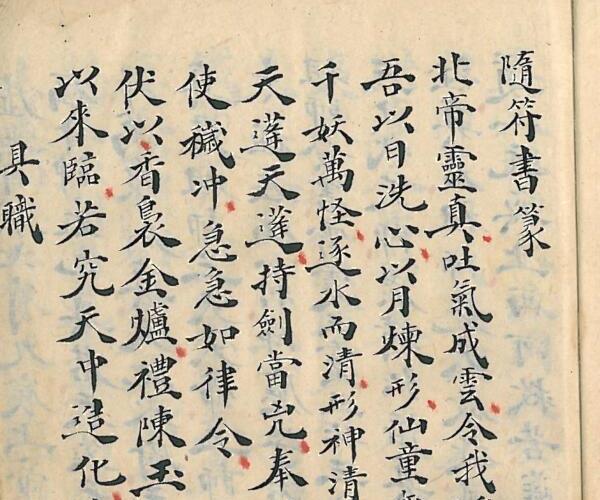 隨符書篆
北帝靈真吐氣成雲令我
吾以日洗心以月煉形仙童
千妖萬怪逐水而清形神清
天蓬天蓬持劍當兇奉
使穢冲急急如律令
伏以香裊金爐禮陳玉
以來臨若究天中造化
具職